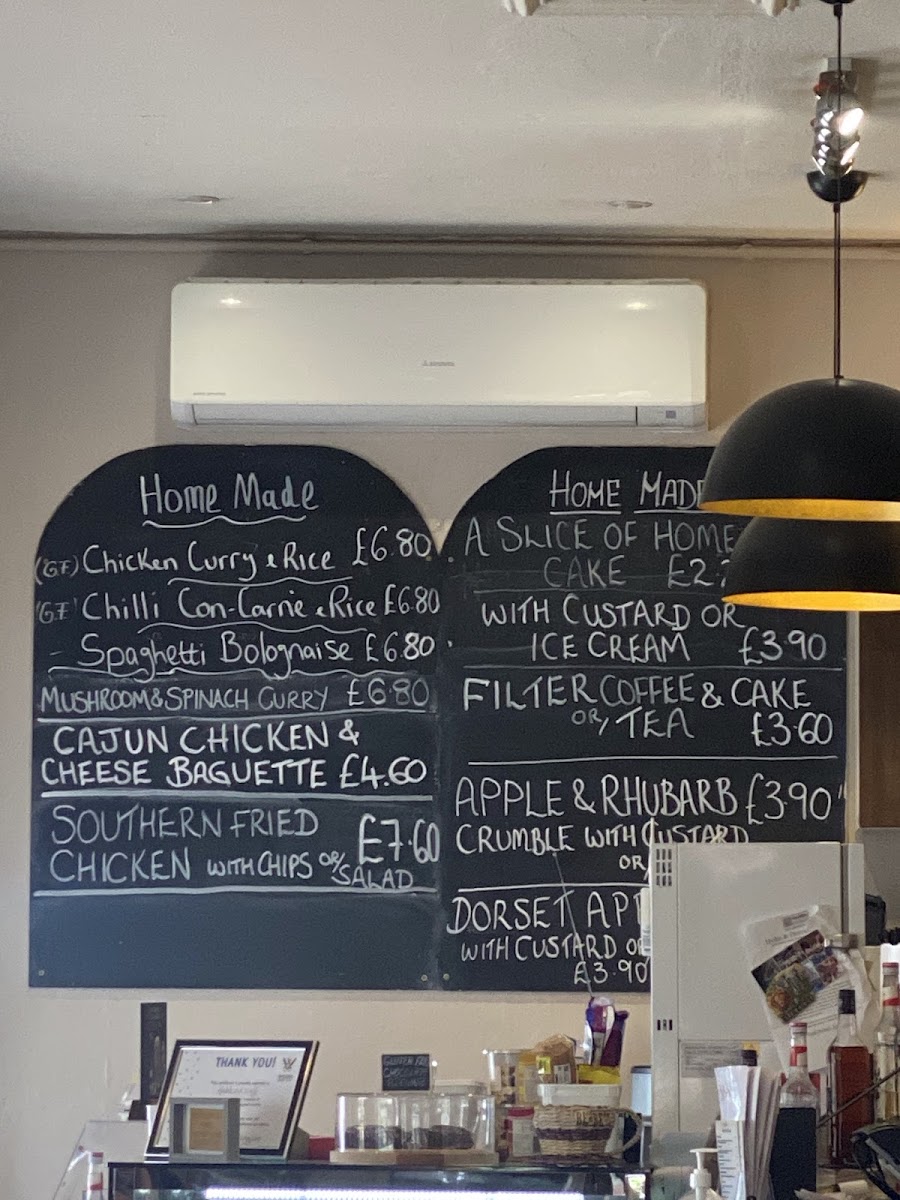 Home Made
(GF) Chicken Curry & Rice £6.80
(GF) Chilli Con-Carne & Rice £6.80
- Spaghetti Bolognaise £6.80
MUSHROOM & SPINACH CURRY £6.80
CAJUN CHICKEN &
CHEESE BAGUETTE £4.60
SOUTHERN FRIED
CHICKEN WITH CHIPS OR/ SALAD £7.60
HOME MADE
A SLICE OF HOME
CAKE £2.
WITH CUSTARD OR
ICE CREAM £3.90
FILTER COFFEE & CAKE
OR/ TEA £3.60
APPLE & RHUBARB £3.90
CRUMBLE WITH CUSTARD
OR/
DORSET AP
WITH CUSTARD OR
£3.90
THANK YOU!
GLUTEN FREE
CHOCOLATE